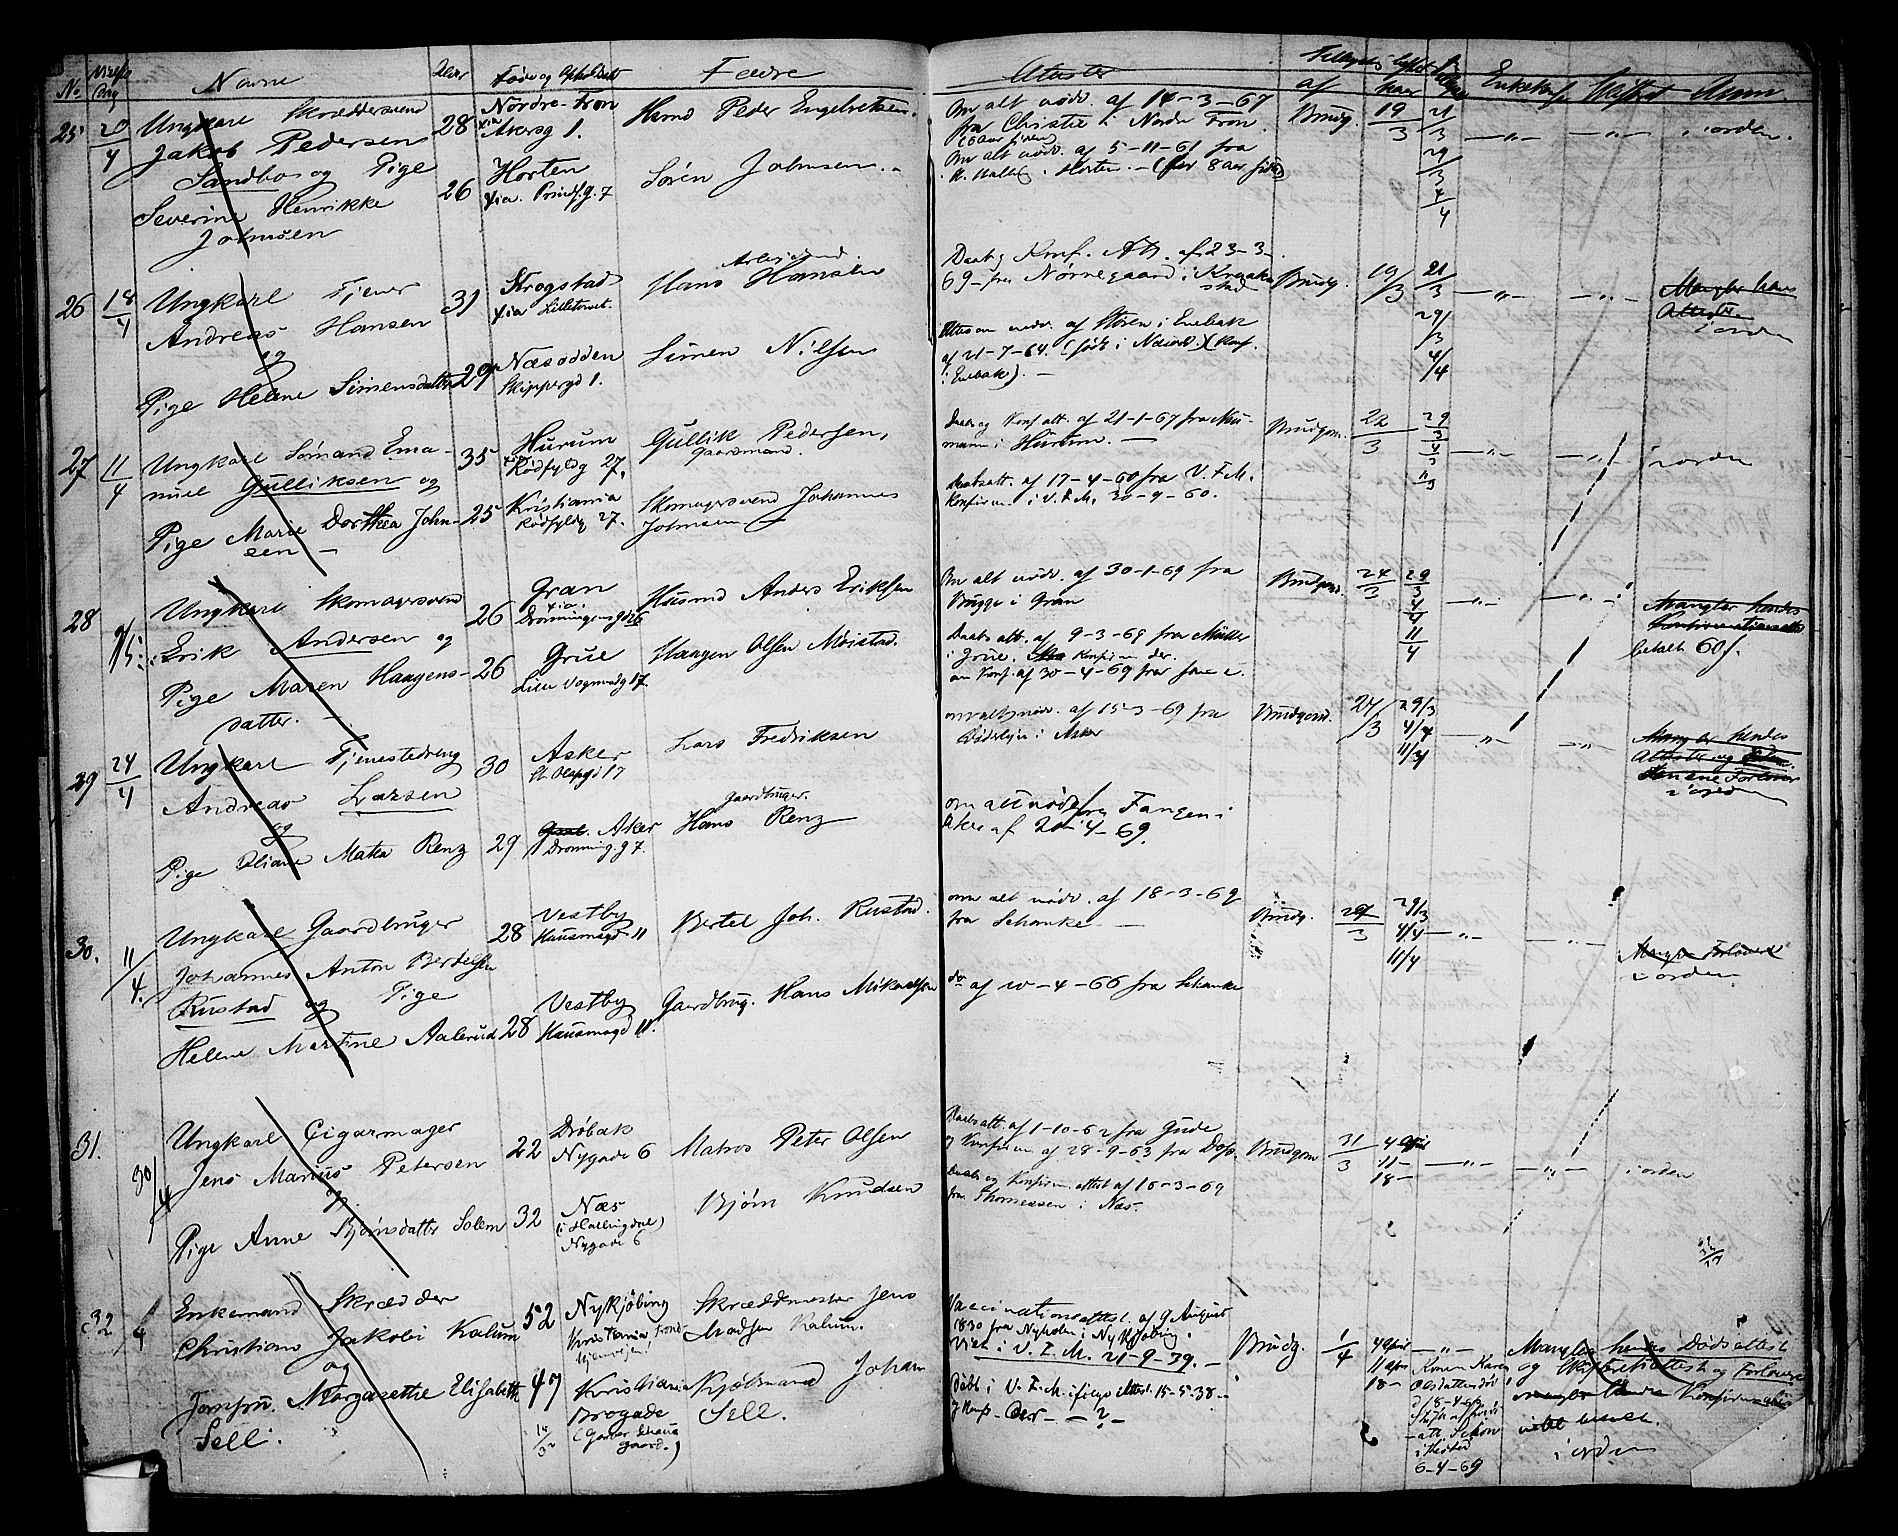 No Vielses Dag Navne Alder Føde og Opholdsst Fædre Atester af Enkeskifte Skiftet Anm.
25 20/4 Ungkarl Skræddersvend 28 Nordre-Fron Husmd Peder Engebretsen.
Jakob Pedersen Xia Akersg 1.
Sandbo og Pige 26 Horten Sören Johnsen.
Severine Henrikke Xia. Prindsg. 7
Johnsen
Om alt nødv. af 14-3-67 Brudg. 19/3 21/3 —„— —„— i orden.
fra Christie i Nordre Fron.
Om alt nødv. af 5-11-61 fra 29/3
i Horten. — (for 8 aar siden) 4/4
26 18/4 Ungkarl Tjener 31 Krogstad Arbeidsmd. Hans Hansen
Andreas Hansen Xia Lilletorvet.
og
Pige Helene Simensdatter 29 Næsodden Simen Nilsen
Skipperg 1.
Daabs og Konf. Att. af 23-3-
69 - fra Nørregaard i Kraakstad Brudg. 19/3 21/3 —„— —„— Mangler hans
Attester
i orden
Attest om nødv. af Støren i Enebak 29/3
af 21-7-64. (født i Næsodd.) (Konf. 4/4
i Enebak). —
27 11/4 Ungkarl Sømand Ema- 35 Hurum Gullik Pedersen,
nuel Gulliksen og Rødfyldg 27. Gaardmand.
Pige Marie Dorthea John- 25 Kristiania Skomagersvend Johannes
sen — Rødfyldg 27. Johnsen
Daabs og Konf att. af 21-1-67 fra Neu- Brudgom. 22/3 29/3 —„— —„— i orden
mann i Hurum. —
Daabsatt. af 17-4-60 fra V. F. M.
Konfirm. i V. F. M. 30-9-60.
28 9/5 Ungkarl Skomagersvend 26 Gran Husmd Anders Eriksen
Erik Andersen og Xia. Dronningensg 26
Pige Maren Haagens- 26 Grue Haagen Olsen Moistad.
datter. — Lille Vognmdg 17.
Om alt nødv. af 30-1-69 fra Brudgom. 24/3 29/3 —„— —„— Mangler hendes
Brugge i Gran 4/4 Konfirmationsatt
Daabs att. af 9-3-69 fra Müller 11/4 betalt 60 s.
i Grue. Konfirm. der.
om Konf. af 30-4-69 fra samme.
29 24/4 Ungkarl Tjenestedreng 30 Asker Lars Fredriksen
Andreas Larsen St. Olafsgd 17
og
Pige Oliane Mathea Renz 29 Aker Gaardbruger. Hans Renz
Dronning. g 7.
om alt nødv. af 15-3-69 fra Brudgom. 24/3 29/3 —„— —„— Mangler hendes
i Asker 4/4 Attester og
11/4 Forlover
i orden
om alt nødv fra Fangen i
Aker af 20-4-69.
30. 11/4. Ungkarl Gaardbruger 28 Vestby Bertel Joh. Rustad.
Johannes Anton Bertelsen Hausmagd 11
Rustad og Pige
Helene Martine Aalerud 28 Vestby Gaardbrug. Hans Mikaelsen
Hausmagd 11.
om alt nødv. af 18-3-69 Brudg. 24/3 29/3 —„— —„— Mangler Forlovere
fra Schanke. — 4/4 i orden
11/4
do af 10-4-66 fra Schanke
31. 30/4 Ungkarl Cigarmager 22 Drøbak Matros Peter Olsen
Jens Marius Petersen Nygade 6
og
Pige Anne Bjørnsdatter Solem 32 Næs Bjørn Knudsen
(i Hallingdal)
Nygade 6
Daabsatt. af 1-10-62 fra Gude Brudgom 31/3 4 April —„— —„— i orden
og Konfirm af 28-9-63 fra Do. 11-
Daabs og Konfirm. attest af 16-3-69 18-
fra Thomessen i Næs.
32 1/4 Enkemand Skrædder 52 Nykjöbing Skræddmester Jens
Christian Jakobi Kalum Kristiania Madsen Kalum.
og
Jomfru. Margarethe Elisabeth 47 Kristiania Kjøbmand Johan
Sell. Brogade Sell.
Vaccinationsattest. af 9 August Brudg. 1/4 4 April —„— Mangler hendes Dødsattest
1830 fra Nyholm i Nykjøbing. 11 April Konen Karen og Skifteretsattest og Forlovere
Viet i V. F. M. 21-9-39. — 18- Olsdatter død
Døbt i V. F. M. ifølge Attest. 15-5-38. Konfirmations
og Konf. Der — ? — betalt.
6-4-69 i orden